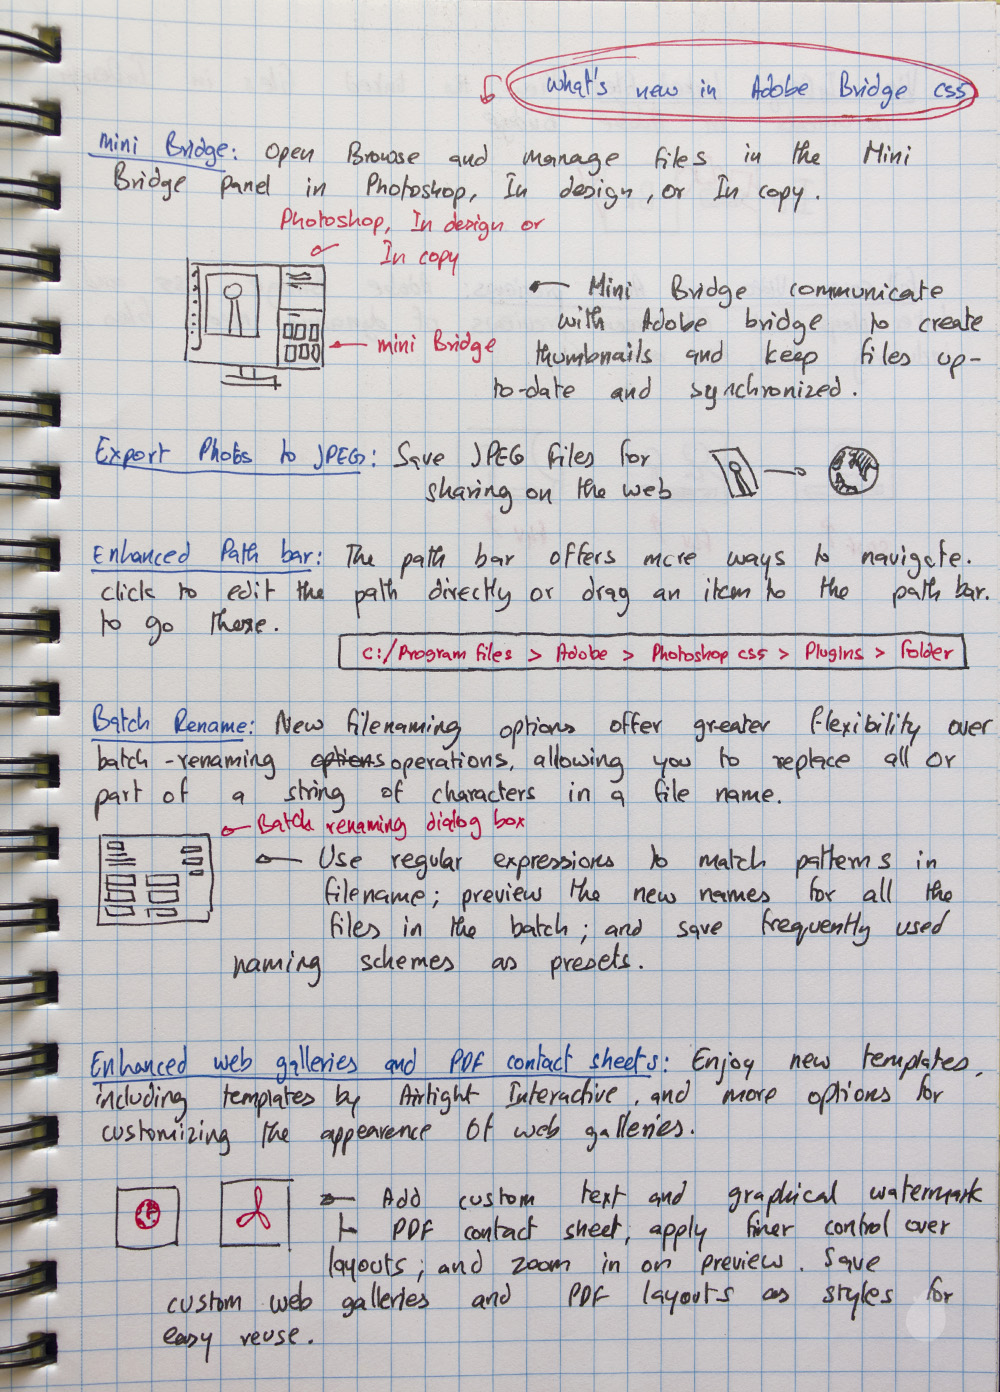 what's new in Adobe Bridge CS5
Mini Bridge: Open Browse and manage files in the Mini
Bridge panel in Photoshop, In design, or In copy.
Photoshop, In design or
In copy
Mini Bridge communicate
with Adobe bridge to create
mini Bridge
thumbnails and keep files up-
to-date and synchronized.
Export Photos to JPEG: Save JPEG files for
sharing on the web
Enhanced Path bar: The path bar offers more ways to navigate.
click to edit the path directly or drag an item to the path bar.
to go there.
C:/Program files > Adobe > Photoshop CS5 > Plugins > folder
Batch Rename: New filenaming options offer greater flexibility over
batch-renaming options operations, allowing you to replace all or
part of a string of characters in a file name.
Batch renaming dialog box
Use regular expressions to match patterns in
filename; preview the new names for all the
files in the batch; and save frequently used
naming schemes as presets.
Enhanced web galleries and PDF contact sheets: Enjoy new templates,
including templates by Airtight Interactive, and more options for
customizing the appearence of web galleries.
Add custom text and graphical watermark
PDF contact sheet, apply finer control over
layouts; and zoom in on preview. Save
custom web galleries and PDF layouts as styles for
easy reuse.